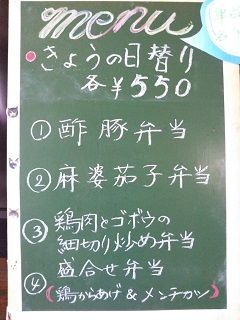 menu
きょうの日替り
各¥550
①酢豚弁当
②麻婆茄子弁当
③鶏肉とゴボウの
細切り炒め弁当
④盛合せ弁当
(鶏からあげ&メンチカツ)